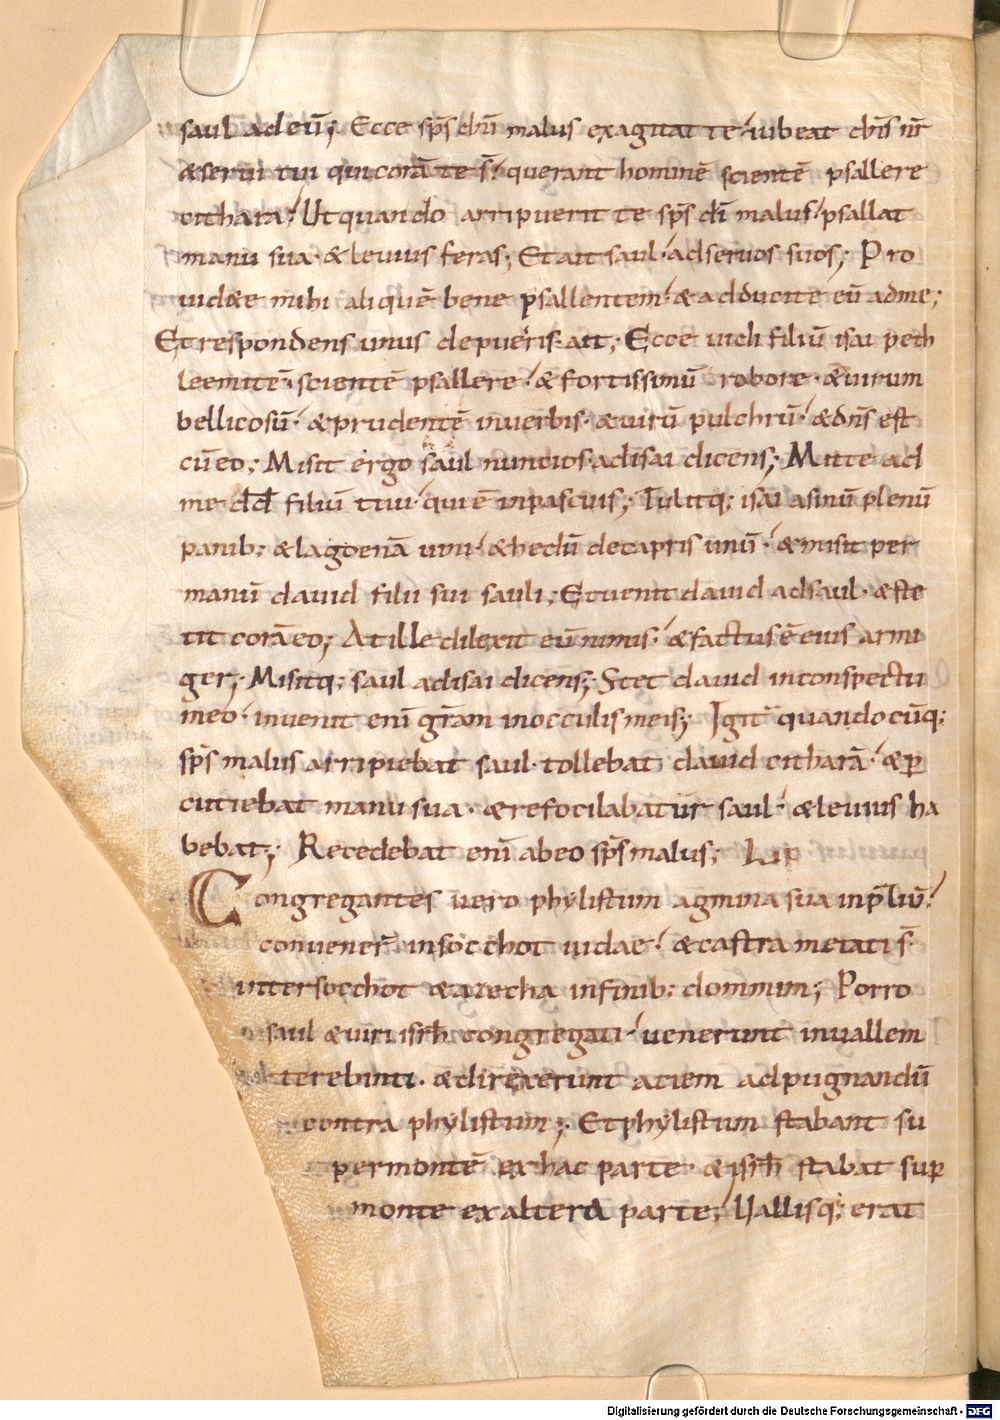 saul ad eū; Ecce sp̄s dn̄i malus exagitat te· iubeat dn̄s nr̄
& serui tui qui corā te s̄· querant hominē scientē psallere
cithara· Ut quando arripuerit te sp̄s dn̄i malus· psallat
manu sua· & leuius feras; Et ait saul· ad seruos suos; Pro
uidete mihi aliquē bene psallentem· & adducite eū ad me;
Et respondens unus de pueris· ait; Ecce uidi filiū isai beth
leemitē· scientē psallere· & fortissimū robore· & uirum
bellicosū· & prudentē in uerbis· & uirū pulchrū· & dn̄s est
cū eo; Misit ergo saul nuncios ad isai dicens; Mitte ad
me dd̄ filiū tuū· qui ē in pascuis; Tulitq; isai asinū plenū
panib; & lagoenā uini· & hedū de capris unū· & misit per
manū dauid filii sui sauli; Et uenit dauid ad saul· & ste
tit corā eo; At ille dilexit eū nimis· & factus ē eius armi
ger; Misitq; saul ad isai dicens; Stet dauid in conspectu
meo· inuenit enī grām in occulis meis; Igit quandocūq;
sp̄s malus arripiebat saul· tollebat dauid citharā· & per
cutiebat manu sua· & refocilabatur saul· & leuius ha
bebat; Recedebat enī ab eo sp̄s malus;
Congregantes uero phylistiim agmina sua in p̄liū·
conuener̄ in socchot iudae· & castra metati s̄·
inter socchot & azecha in finib; dommim; Porro
saul & uiri isrh̄l congregati· uenerunt in uallem
terebinti· & direxerunt aciem ad pugnandū
contra phylistiim; Et phylistiim stabant su
per montē ex hac parte· & isrh̄l stabat sup̄
monte ex altera parte; Uallisq; erat
Digitalisierung gefördert durch die Deutsche Forschungsgemeinschaft - DFG